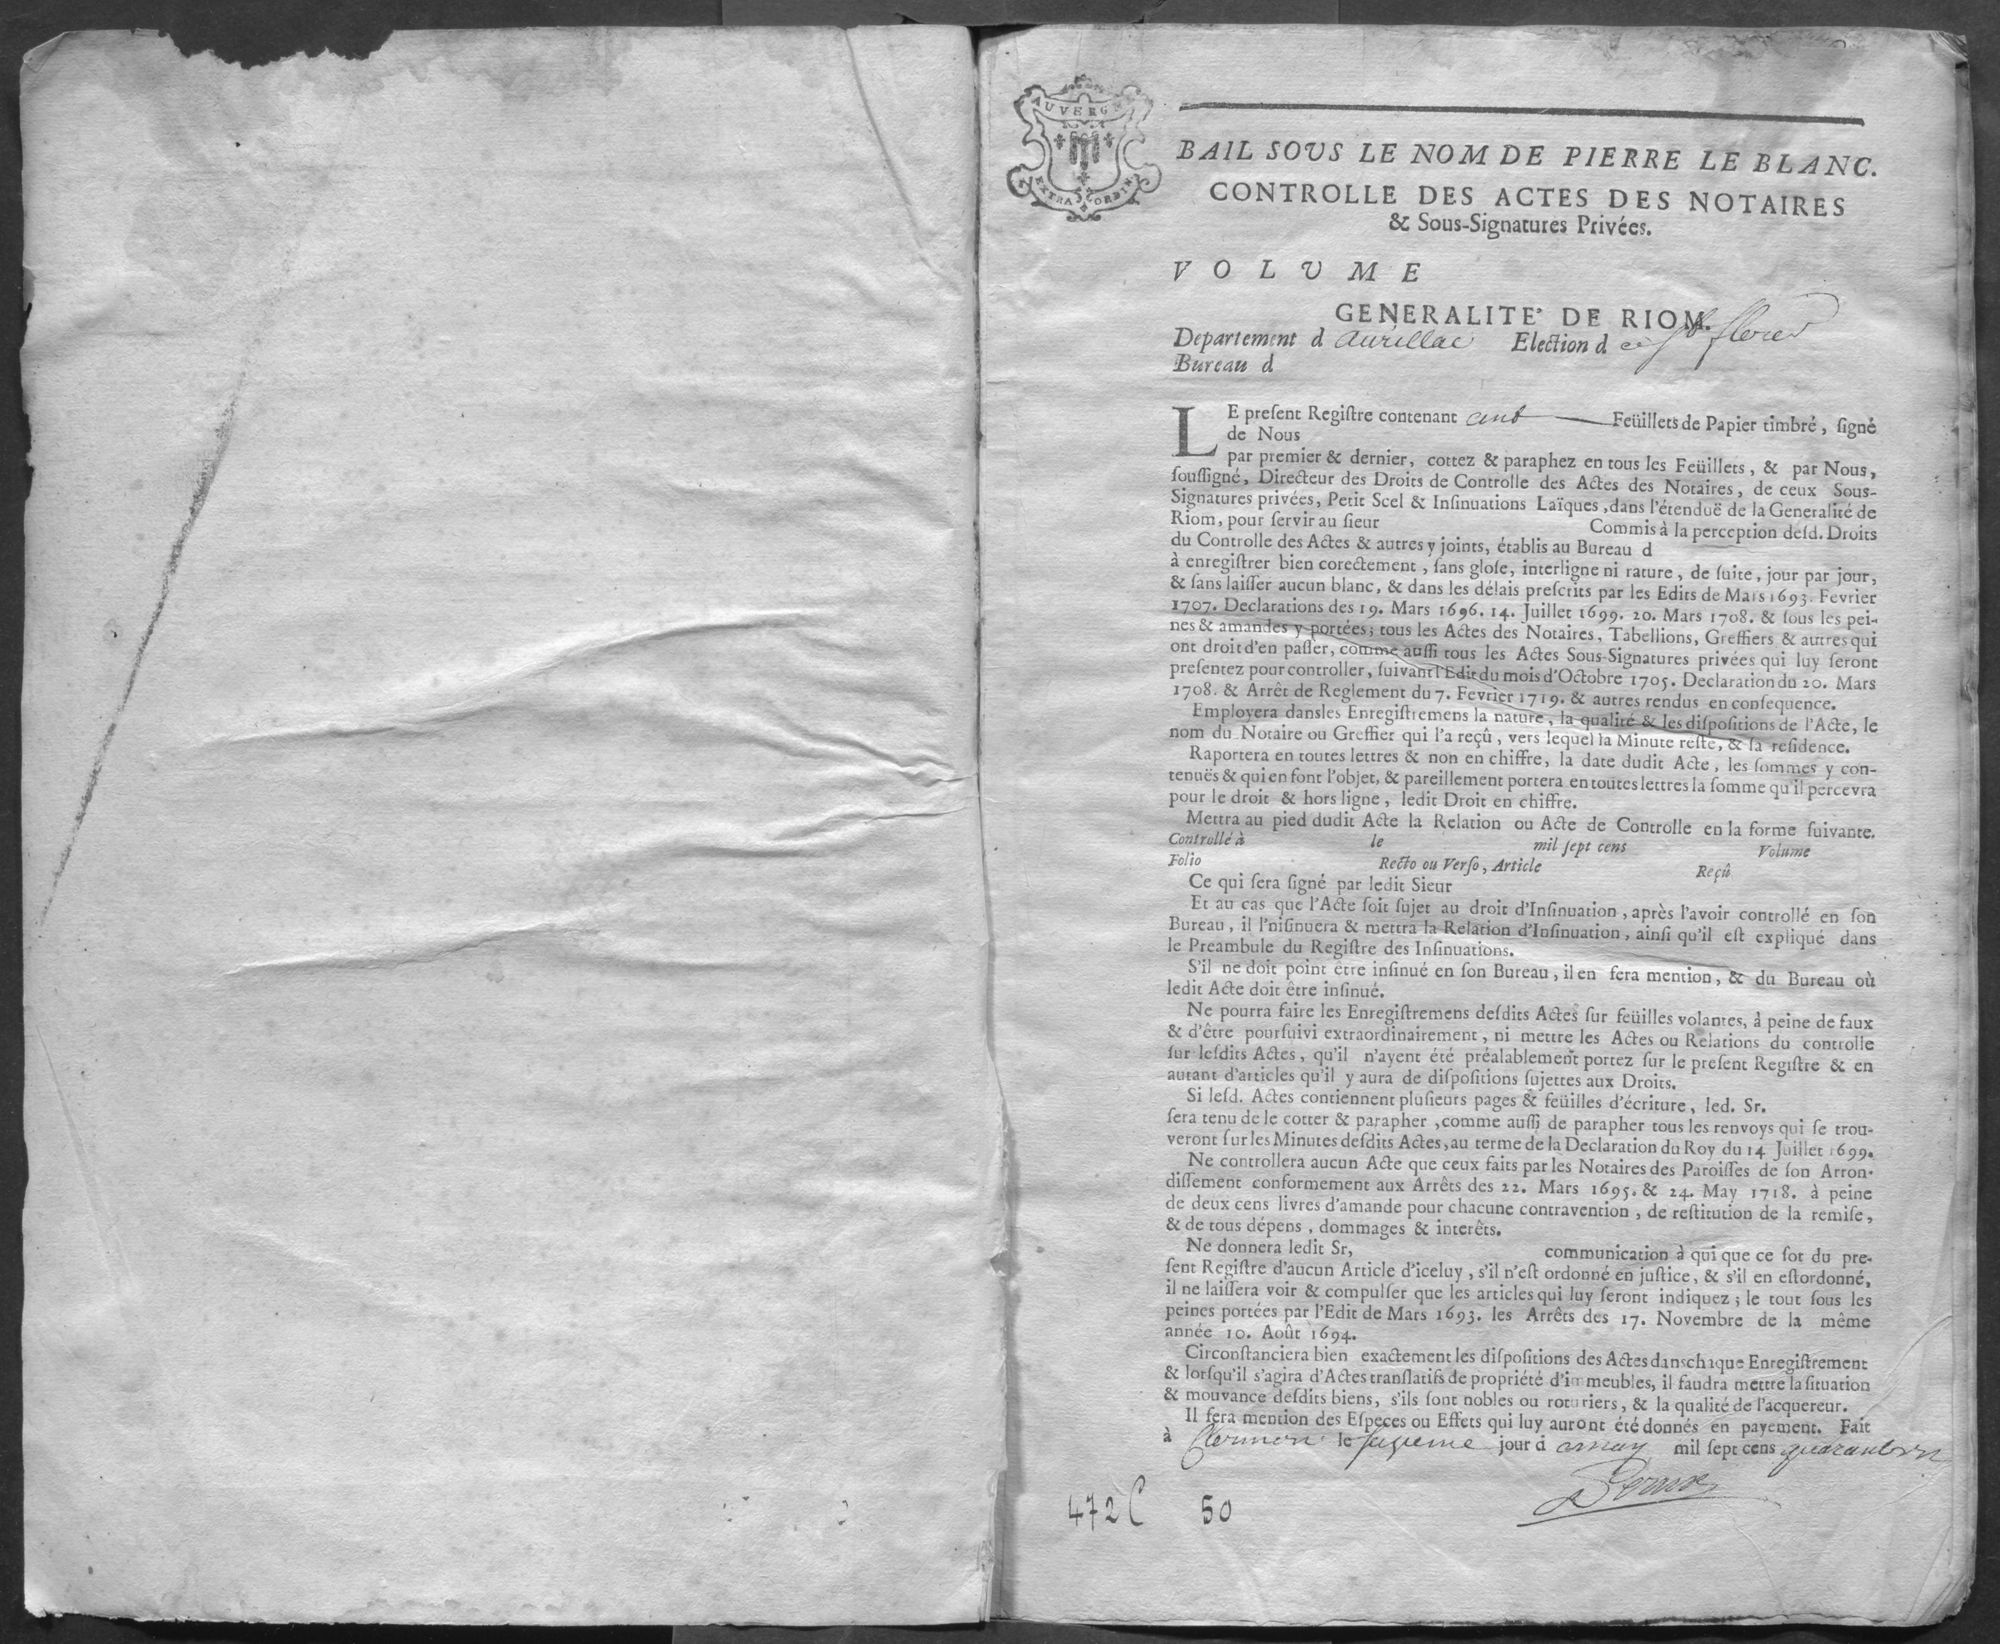 AUVERGNE
EXTRAORDIN
BAIL SOUS LE NOM DE PIERRE LE BLANC.
CONTROLLE DES ACTES DES NOTAIRES
& Sous-Signatures Privées.
VOLUME
GENERALITE' DE RIOM.
Departement d aurillac Election d e st flour
Bureau d
LE preſent Regiſtre contenant cent Feüillets de Papier timbré, ſigné
de Nous
par premier & dernier, cottez & paraphez en tous les Feüillets, & par Nous,
ſouſſigné, Directeur des Droits de Controlle des Actes des Notaires, de ceux Sous-
Signatures privées, Petit Scel & Inſinuations Laïques, dans l'étenduë de la Generalité de
Riom, pour ſervir au ſieur Commis à la perception deſd. Droits
du Controlle des Actes & autres y joints, établis au Bureau d
à enregiſtrer bien corectement, ſans gloſe, interligne ni rature, de ſuite, jour par jour,
& ſans laiſſer aucun blanc, & dans les délais preſcrits par les Edits de Mars 1693. Fevrier
1707. Declarations des 19. Mars 1696. 14. Juillet 1699. 20. Mars 1708. & ſous les pei-
nes & amandes y portées; tous les Actes des Notaires, Tabellions, Greffiers & autres qui
ont droit d'en paſſer, comme auſſi tous les Actes Sous-Signatures privées qui luy ſeront
preſentez pour controller, ſuivant l'Edit du mois d'Octobre 1705. Declaration du 20. Mars
1708. & Arrêt de Reglement du 7. Fevrier 1719. & autres rendus en conſequence.
Employera dans les Enregiſtremens la nature, la qualité & les diſpoſitions de l'Acte, le
nom du Notaire ou Greffier qui l'a reçû, vers lequel la Minute reſte, & ſa reſidence.
Raportera en toutes lettres & non en chiffre, la date dudit Acte, les ſommes y con-
tenuës & qui en font l'objet, & pareillement portera en toutes lettres la ſomme qu'il percevra
pour le droit & hors ligne, ledit Droit en chiffre.
Mettra au pied dudit Acte la Relation ou Acte de Controlle en la forme ſuivante.
Controllé à le mil ſept cens Volume
Folio Recto ou Verſo, Article Reçû
Ce qui ſera ſigné par ledit Sieur
Et au cas que l'Acte ſoit ſujet au droit d'Inſinuation, après l'avoir controllé en ſon
Bureau, il l'niſinuera & mettra la Relation d'Inſinuation, ainſi qu'il eſt expliqué dans
le Preambule du Regiſtre des Inſinuations.
S'il ne doit point être inſinué en ſon Bureau, il en fera mention, & du Bureau où
ledit Acte doit être inſinué.
Ne pourra faire les Enregiſtremens deſdits Actes ſur feüilles volantes, à peine de faux
& d'être pourſuivi extraordinairement, ni mettre les Actes ou Relations du controlle
ſur leſdits Actes, qu'il n'ayent été préalablement portez ſur le preſent Regiſtre & en
autant d'articles qu'il y aura de diſpoſitions ſujettes aux Droits.
Si leſd. Actes contiennent pluſieurs pages & feüilles d'écriture, led. Sr.
ſera tenu de le cotter & parapher, comme auſſi de parapher tous les renvoys qui ſe trou-
veront ſur les Minutes deſdits Actes, au terme de la Declaration du Roy du 14 Juillet 1699.
Ne controllera aucun Acte que ceux faits par les Notaires des Paroiſſes de ſon Arron-
diſſement conformement aux Arrêts des 22. Mars 1695. & 24. May 1718. à peine
de deux cens livres d'amande pour chacune contravention, de reſtitution de la remiſe,
& de tous dépens, dommages & interêts.
Ne donnera ledit Sr, communication à qui que ce ſot du pre-
ſent Regiſtre d'aucun Article d'iceluy, s'il n'eſt ordonné en juſtice, & s'il en eſtordonné,
il ne laiſſera voir & compulſer que les articles qui luy ſeront indiquez; le tout ſous les
peines portées par l'Edit de Mars 1693. les Arrêts des 17. Novembre de la même
année 10. Août 1694.
Circonſtanciera bien exactement les diſpoſitions des Actes dans chaque Enregiſtrement
& lorſqu'il s'agira d'Actes tranſlatifs de propriété d'immeubles, il faudra mettre la ſituation
& mouvance deſdits biens, s'ils ſont nobles ou roturiers, & la qualité de l'acquereur.
Il fera mention des Eſpeces ou Effets qui luy auront été donnés en payement. Fait
à Clermon le jour d may mil ſept cens
472 C 50